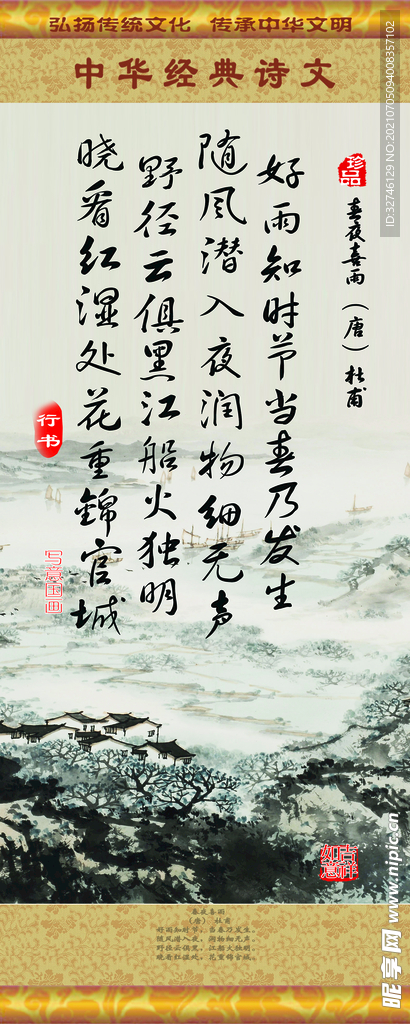 弘扬传统文化 传承中华文明
中华经典诗文
珍品
春夜喜雨（唐）杜甫
好雨知时节当春乃发生
随风潜入夜润物细无声
野径云俱黑江船火独明
晓看红湿处花重锦官城
行书
写意国画
吉祥如意
春夜喜雨
（唐） 杜甫
好雨知时节，当春乃发生。
随风潜入夜，润物细无声。
野径云俱黑，江船火独明。
晓看红湿处，花重锦官城。
ID:32746129 NO:20210705094008357102
昵享网 www.nipic.cn